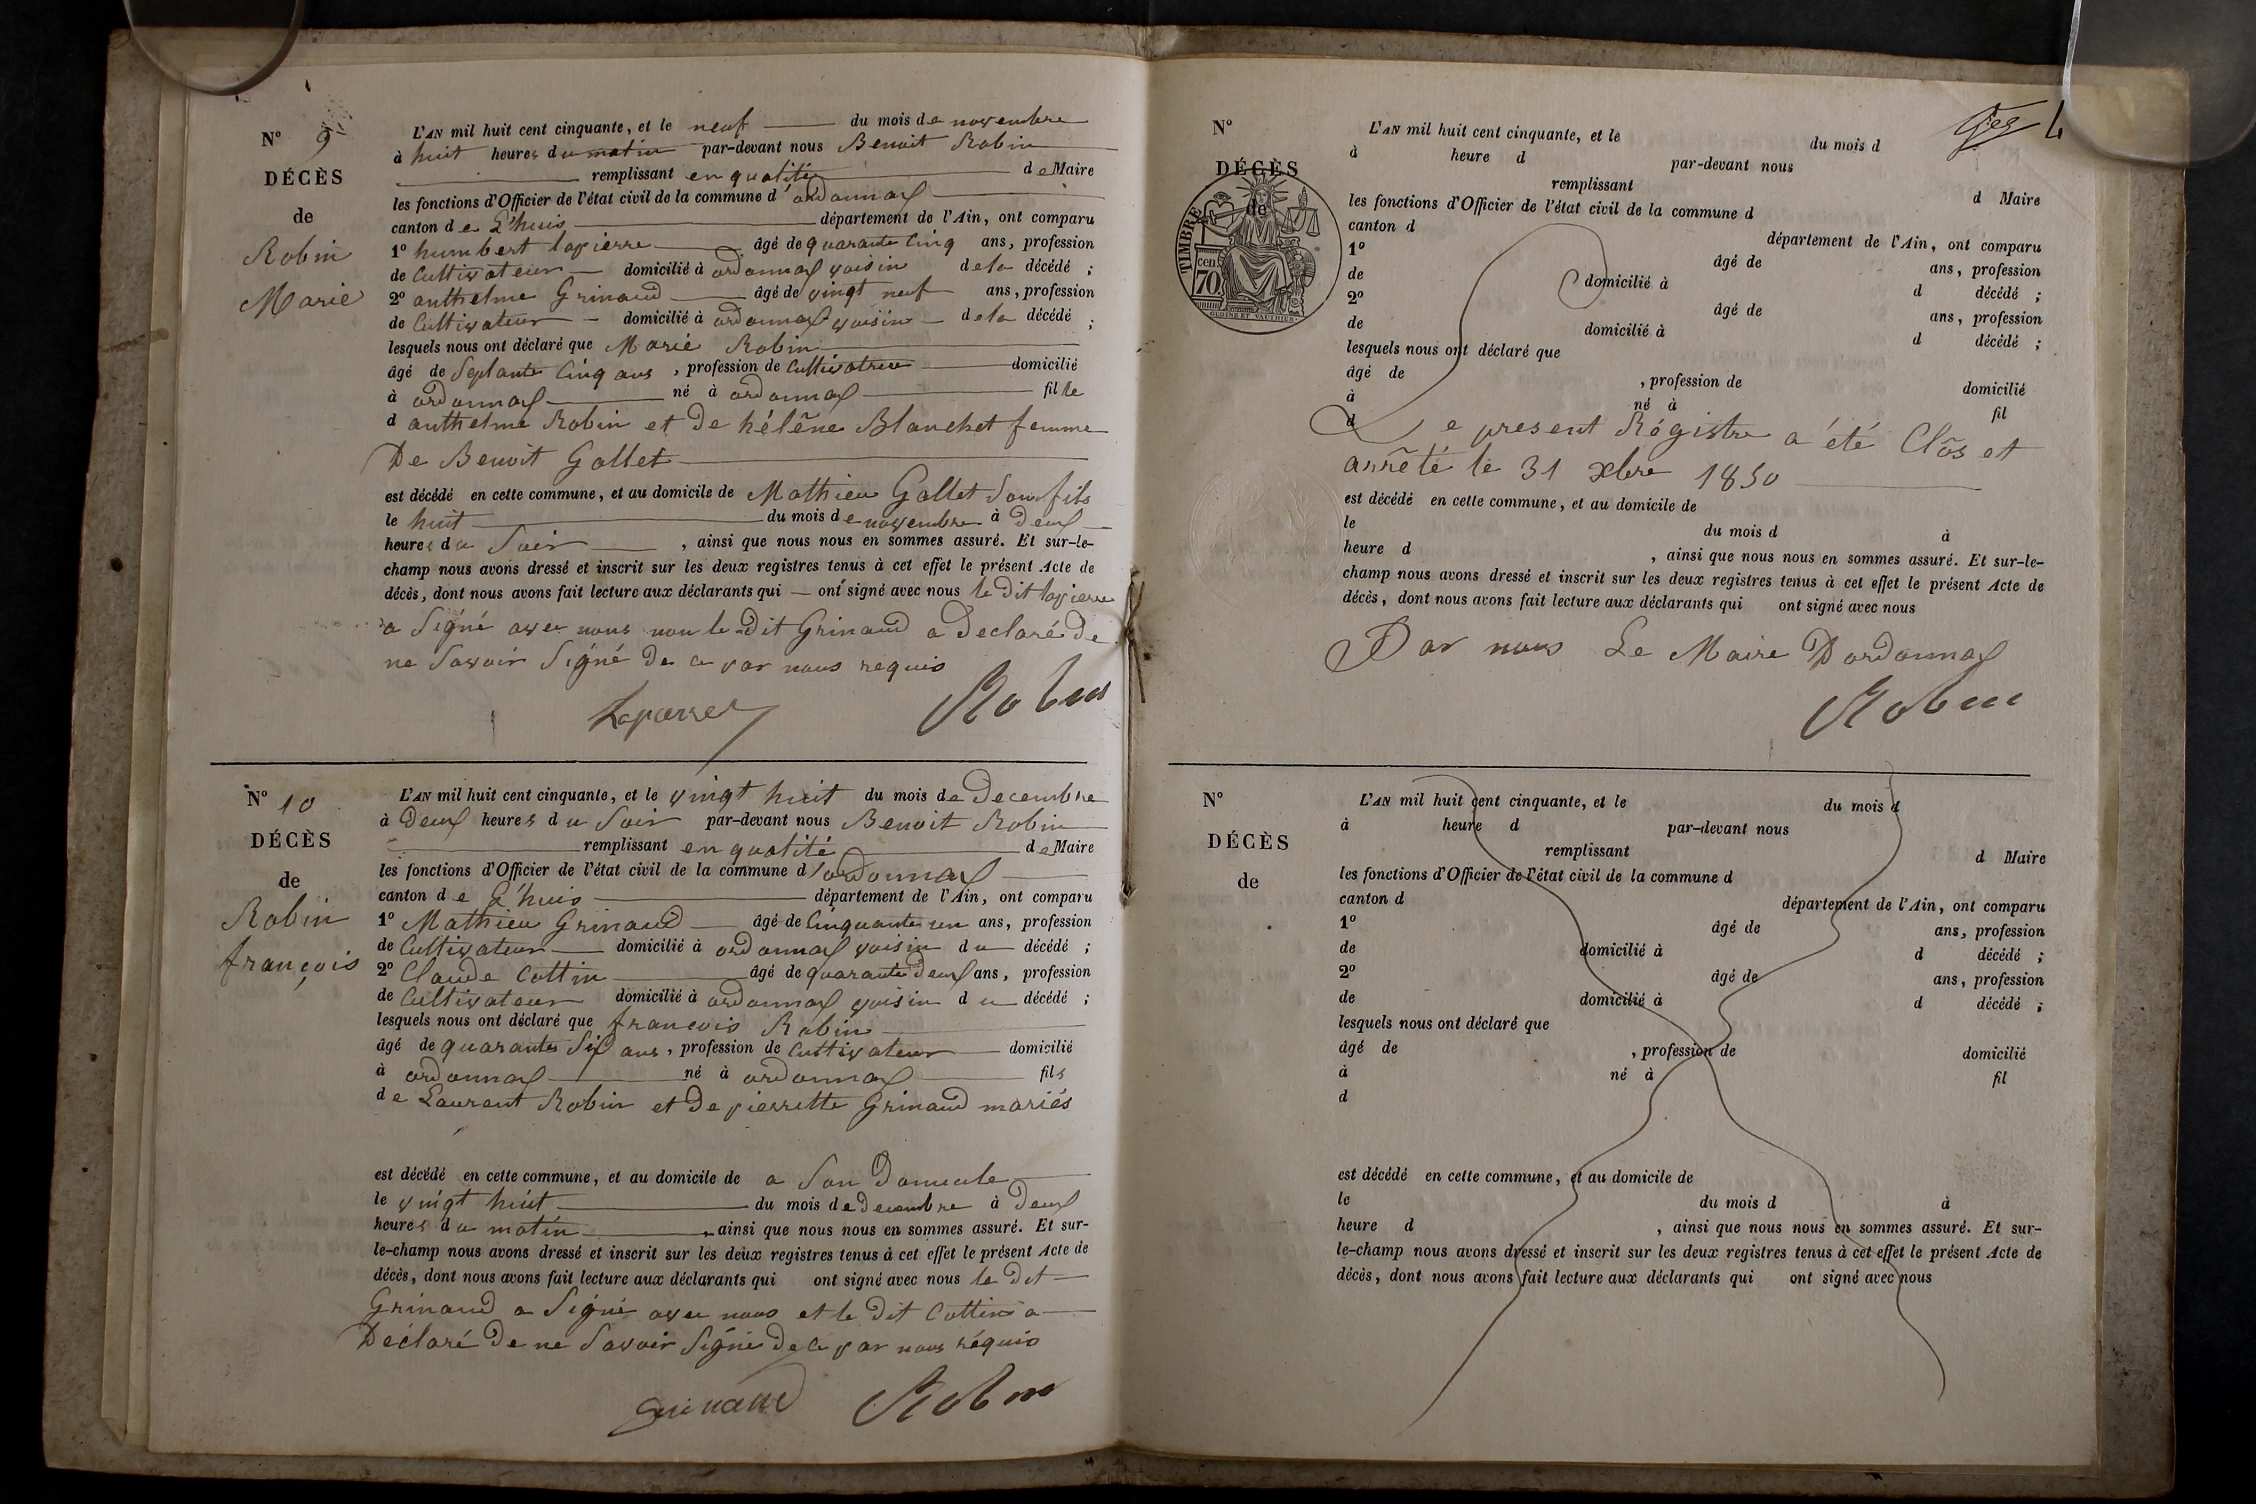 N° 9
DÉCÈS
de
Robin
Marie
L'AN mil huit cent cinquante, et le neuf du mois de novembre
à huit heures du matin par-devant nous Benoit Robin
remplissant en qualité de Maire
les fonctions d'Officier de l'état civil de la commune d'ordonnax
canton de L'huis département de l'Ain, ont comparu
1° humbert lapierre âgé de quarante Cinq ans, profession
de Cultivateur domicilié à ordonnax voisin de la décédé ;
2° anthelme Grinand âgé de vingt neuf ans, profession
de Cultivateur domicilié à ordonnax voisin de la décédé ;
lesquels nous ont déclaré que Marie Robin
âgé de Septante Cinq ans, profession de Cultivatrice domicilié
à ordonnax né à ordonnax fille
d anthelme Robin et De hélène Blanchet femme
De Benoit Gallet
est décédé en cette commune, et au domicile de Mathieu Gallet Son fils
le huit du mois de novembre à Deux
heures du Soir, ainsi que nous nous en sommes assuré. Et sur-le-
champ nous avons dressé et inscrit sur les deux registres tenus à cet effet le présent Acte de
décès, dont nous avons fait lecture aux déclarants qui — ont signé avec nous le Dit lapierre
a Signé avec nous non le Dit Grinand a Declaré De
ne Savoir Signé De ce par nous requis
Lapierre Robin
N° 10
DÉCÈS
de
Robin
françois
L'AN mil huit cent cinquante, et le vingt huit du mois de Decembre
à Deux heures du Soir par-devant nous Benoit Robin
remplissant en qualité de Maire
les fonctions d'Officier de l'état civil de la commune d'ordonnax
canton de L'huis département de l'Ain, ont comparu
1° Mathieu Grinand âgé de Cinquante un ans, profession
de Cultivateur domicilié à ordonnax voisin du décédé ;
2° Claude Cottin âgé de quarante Deux ans, profession
de Cultivateur domicilié à ordonnax voisin du décédé ;
lesquels nous ont déclaré que françois Robin
âgé de quarante Six ans, profession de Cultivateur domicilié
à ordonnax né à ordonnax fils
de Laurent Robin et De pierrette Grinand mariés
est décédé en cette commune, et au domicile de a Son Domicile
le vingt huit du mois de Decembre à Deux
heures du matin, ainsi que nous nous en sommes assuré. Et sur-
le-champ nous avons dressé et inscrit sur les deux registres tenus à cet effet le présent Acte de
décès, dont nous avons fait lecture aux déclarants qui ont signé avec nous le Dit
Grinand a Signé avec nous et le Dit Cottin a
Déclaré De ne Savoir Signé De Ce par nous réquis
Grinand Robin
N°
DÉCÈS
de
TIMBRE
cen
70
L'AN mil huit cent cinquante, et le du mois d
à heure d par-devant nous
remplissant d Maire
les fonctions d'Officier de l'état civil de la commune d
canton d département de l'Ain, ont comparu
1° âgé de ans, profession
de domicilié à d décédé ;
2° âgé de ans, profession
de domicilié à d décédé ;
lesquels nous ont déclaré que
âgé de , profession de domicilié
à né à fil
d
Le present Régistre a été Clôs et
arrêté le 31 xbre 1850
est décédé en cette commune, et au domicile de
le du mois d à
heure d , ainsi que nous nous en sommes assuré. Et sur-le-
champ nous avons dressé et inscrit sur les deux registres tenus à cet effet le présent Acte de
décès, dont nous avons fait lecture aux déclarants qui ont signé avec nous
Par nous Le Maire Dordonnax
Robin
N°
DÉCÈS
de
L'AN mil huit cent cinquante, et le du mois d
à heure d par-devant nous
remplissant d Maire
les fonctions d'Officier de l'état civil de la commune d
canton d département de l'Ain, ont comparu
1° âgé de ans, profession
de domicilié à d décédé ;
2° âgé de ans, profession
de domicilié à d décédé ;
lesquels nous ont déclaré que
âgé de , profession de domicilié
à né à fil
d
est décédé en cette commune, et au domicile de
le du mois d à
heure d , ainsi que nous nous en sommes assuré. Et sur-
le-champ nous avons dressé et inscrit sur les deux registres tenus à cet effet le présent Acte de
décès, dont nous avons fait lecture aux déclarants qui ont signé avec nous